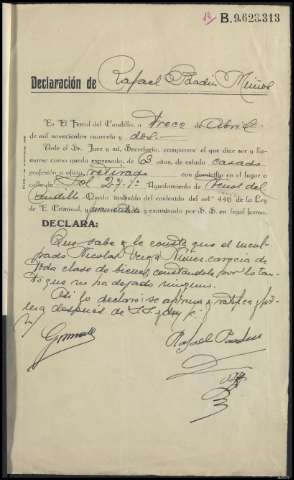 B.9.623.313
Declaración de Rafael Pardín Muñoz
En El Ferrol del Caudillo, a trece de Abril
de mil novecientos cuarenta y dos.-
Ante el Sr. Juez y mi, Secretario, comparece el que dice ser y lla-
marse como queda expresado, de 63 años, de estado casado
profesión u oficio retirado con domicilio en el lugar o
calle de Sol 27-1º Ayuntamiento de Ferrol del
Caudillo Quedo instruido del contenido del artº 446 de la Ley
de E. Criminal, y juramentado y examinado por S. S. en legal forma.
DECLARA:
Que sabe y le consta que el incul-
pado Nicolas Vega Nuñez carecía de
toda clase de bienes, constandole por lo tan-
to que no ha dejado ninguno.
Así lo declaró se afirma y ratifica y fir-
después de S.S. doy fe.
Rafael Pardín